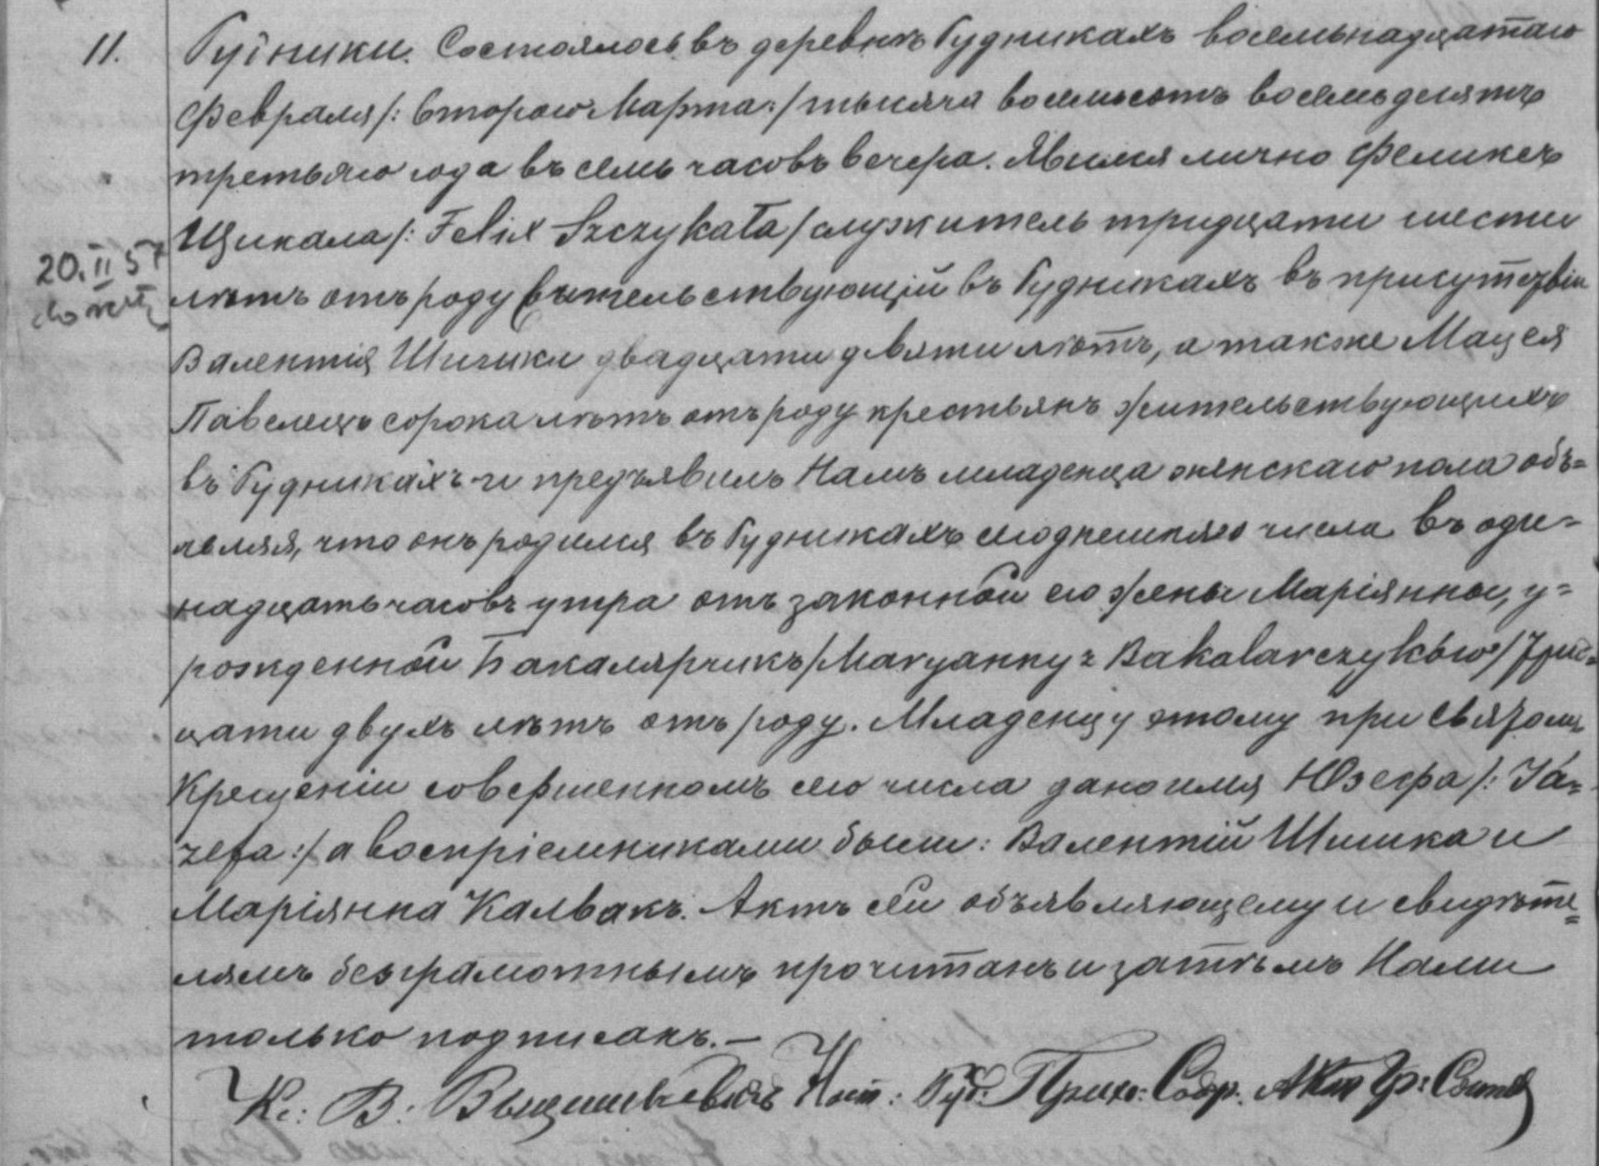 11. Гутники. Состоялось въ деревнѣ Гудникахъ восемьнадцатаго
Февраля /: Второго Марта :/ тысяча восемьсотъ восемьдесятъ
третьяго года въ семь часовъ вечера. Явился лично Феликсъ
Щикала /: Felix Szczykała / служитель тридцати шести
20. II 57
лѣтъ отъ роду жительствующій въ Гудникахъ въ присутствіи
Валентія Шишки двадцати девяти лѣтъ, а также Мацея
Павелецъ сорока лѣтъ отъ роду крестьянъ жительствующихъ
въ Гудникахъ и предъявилъ Намъ младенца женскаго пола объ=
являя, что онъ родился въ Гудникахъ сегоднешняго числа въ оди=
надцать часовъ утра отъ законной его жены Маріянны, у=
рожденной Бакалярчикъ /Maryanny z Bakalarczyków/ Трид=
цати двухъ лѣтъ отъ роду. Младенцу этому при Святомъ
Крещеніи совершенномъ сего числа дано имя Юзефа /: Jó=
zefa :/ а воспріемниками были: Валентій Шишка и
Маріянна Калвакъ. Актъ сей объявляющему и свидѣте=
лямъ безграмотнымъ прочитанъ и затѣмъ Нами
только подписанъ. —
Кс: В. Наст: Гуд. Прих: Содер. Акт. Гр: Сост.